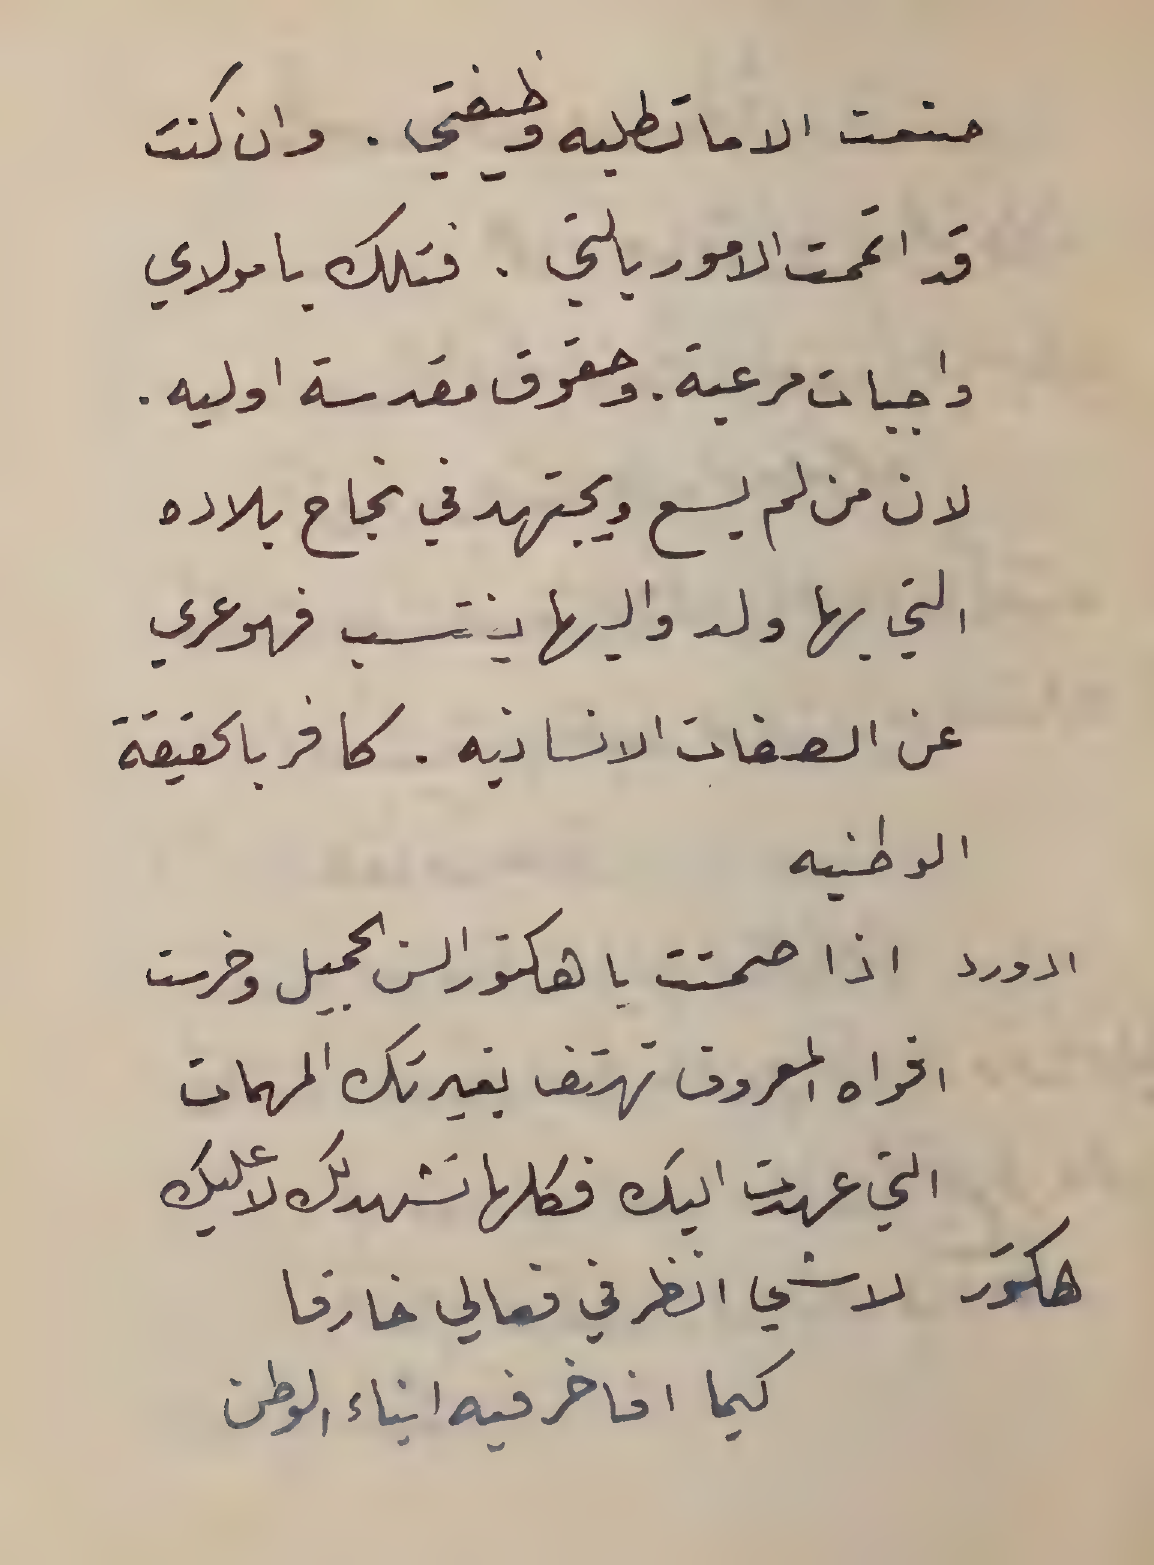 صنعت الا ما تطلبه وظيفتي . وان كنت
قد اتممت الامور بالتي . فتلك يا مولاي
واجبات مرعية . وحقوق مقدسة اوليه .
لان من لم يسع ويجتهد في نجاح بلاده
التي بها ولد واليها ينتسب فهو عري
عن الصفات الانسانيه . كافر بالحقيقة
الوطنيه
ادورد اذا صمتت يا هكتور السن الجميل وخرست
افواه المعروف تهتف بغيرتك المهمات
التي عهدت اليك فكلها تشهد لك لا عليك
هكتور لا شي انظر في فعالي خارقا
كيما افاخر فيه ابناء الوطن